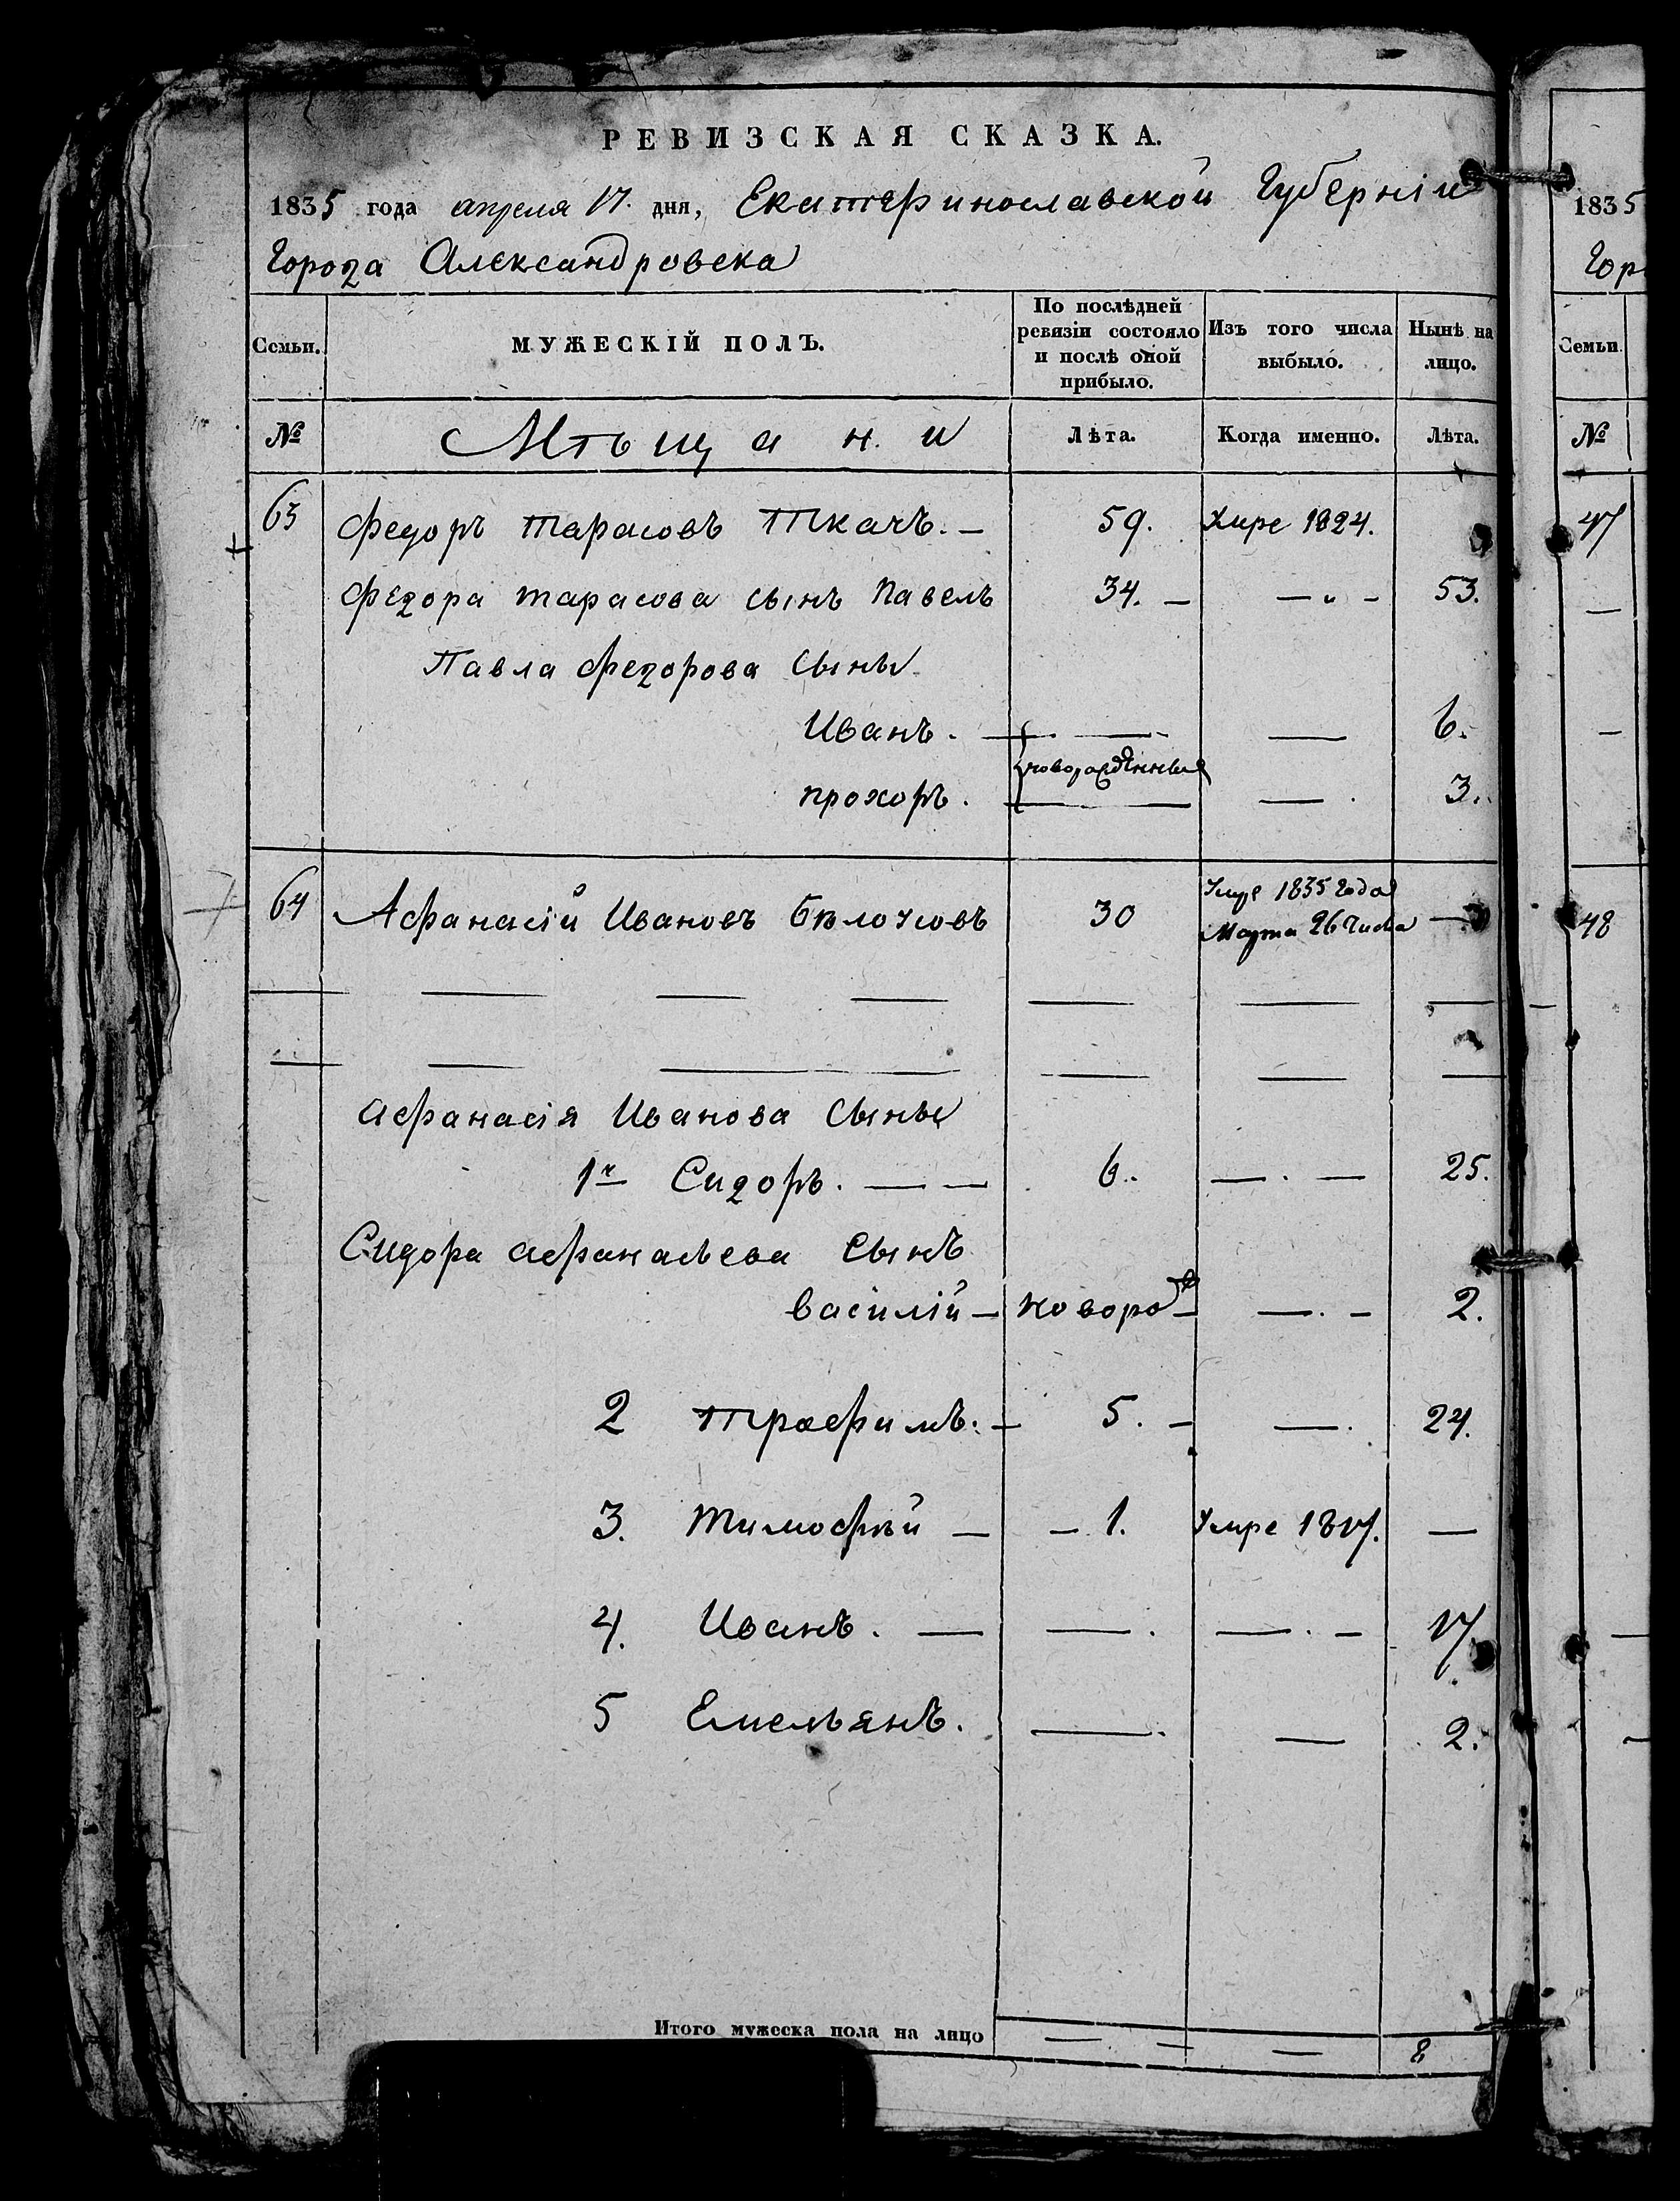 РЕВИЗСКАЯ СКАЗКА.
1835 года апреля 17. дня, Екатеринославской Губерніи
Города Александровска
Семьи. МУЖЕСКІЙ ПОЛЪ. По послѣдней ревизіи состояло и послѣ оной прибыло. Изъ того числа выбыло. Нынѣ на лицо.
№ Мѣщани Лѣта. Когда именно. Лѣта.
63 Федоръ Тарасовъ Ткачъ. — 59. Умре 1824.
Федора Тарасова сынъ Павелъ 34. — — „ — 53.
Павла Федорова Сыны
Иванъ. — — — 6.
новорожденныя
Прохоръ. — — 3.
64 Афанасій Ивановъ Бѣлоусовъ 30 Умре 1835 Года Марта 26 Числа —
Афанасія Иванова Сыны
1й Сидоръ. — — 6. — . — 25.
Сидора Афанасьева Сынъ
Василій — новорд — . — 2.
2 Трофимъ. — 5. — — . 24.
3. Тимофѣй — — 1. Умре 1817. —
4. Иванъ. — — . — . — 17.
5 Емельянъ. — . — 2.
Итого мужеска пола на лицо — — — 8
1835
Гор
Семьи.
№
47
48